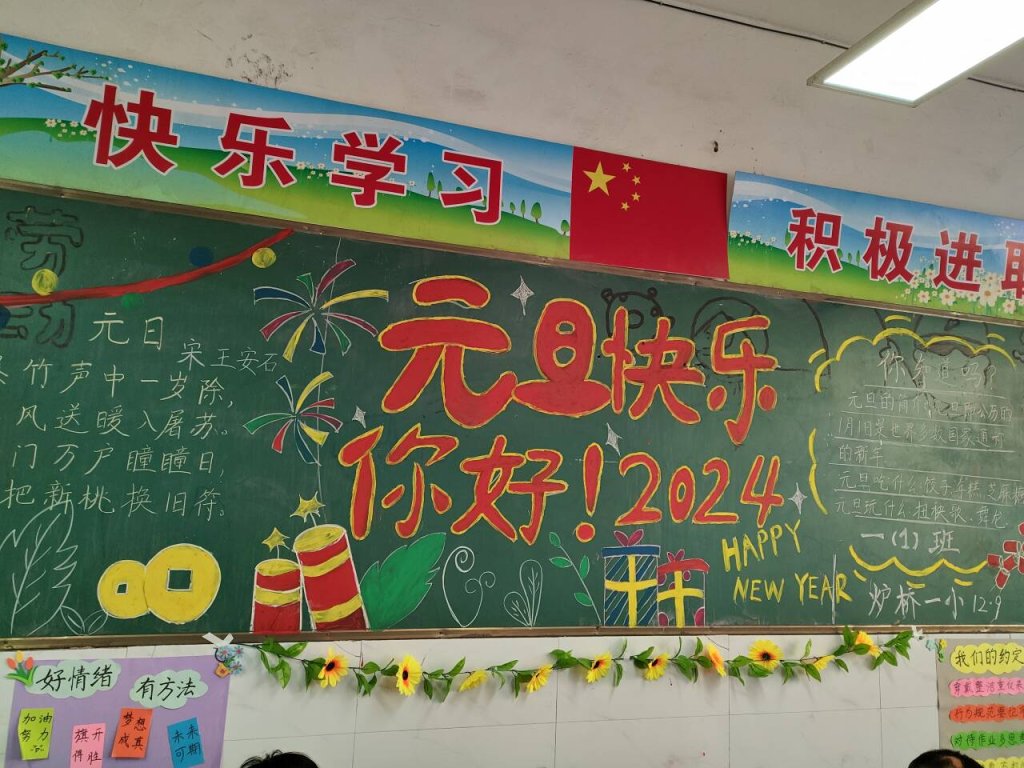 快乐学习
积极进取
元旦快乐
你好！2024
HAPPY
NEW YEAR
元日
宋 王安石
竹声中一岁除，
风送暖入屠苏。
门万户瞳瞳日，
把新桃换旧符。
你知道吗？
1月1日是世界多数国家通
的新年
元旦吃什么：饺子
元旦玩什么：扭秧歌、舞龙
一（1）班
炉桥一小 12.9
劳
动
好情绪
有方法
加油
努力
旗开
得胜
梦想
成真
未来
可期
我们的约定